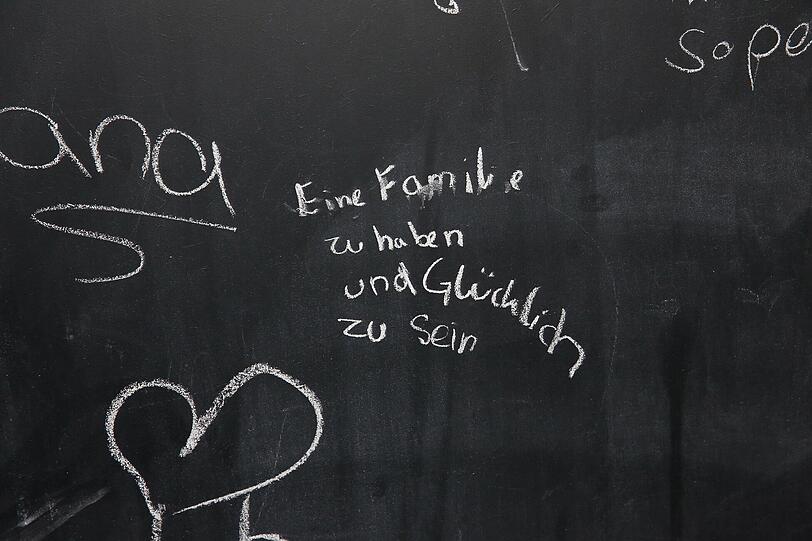 sope
ana
Eine Familie
zu haben
und Glücklich
zu Sein